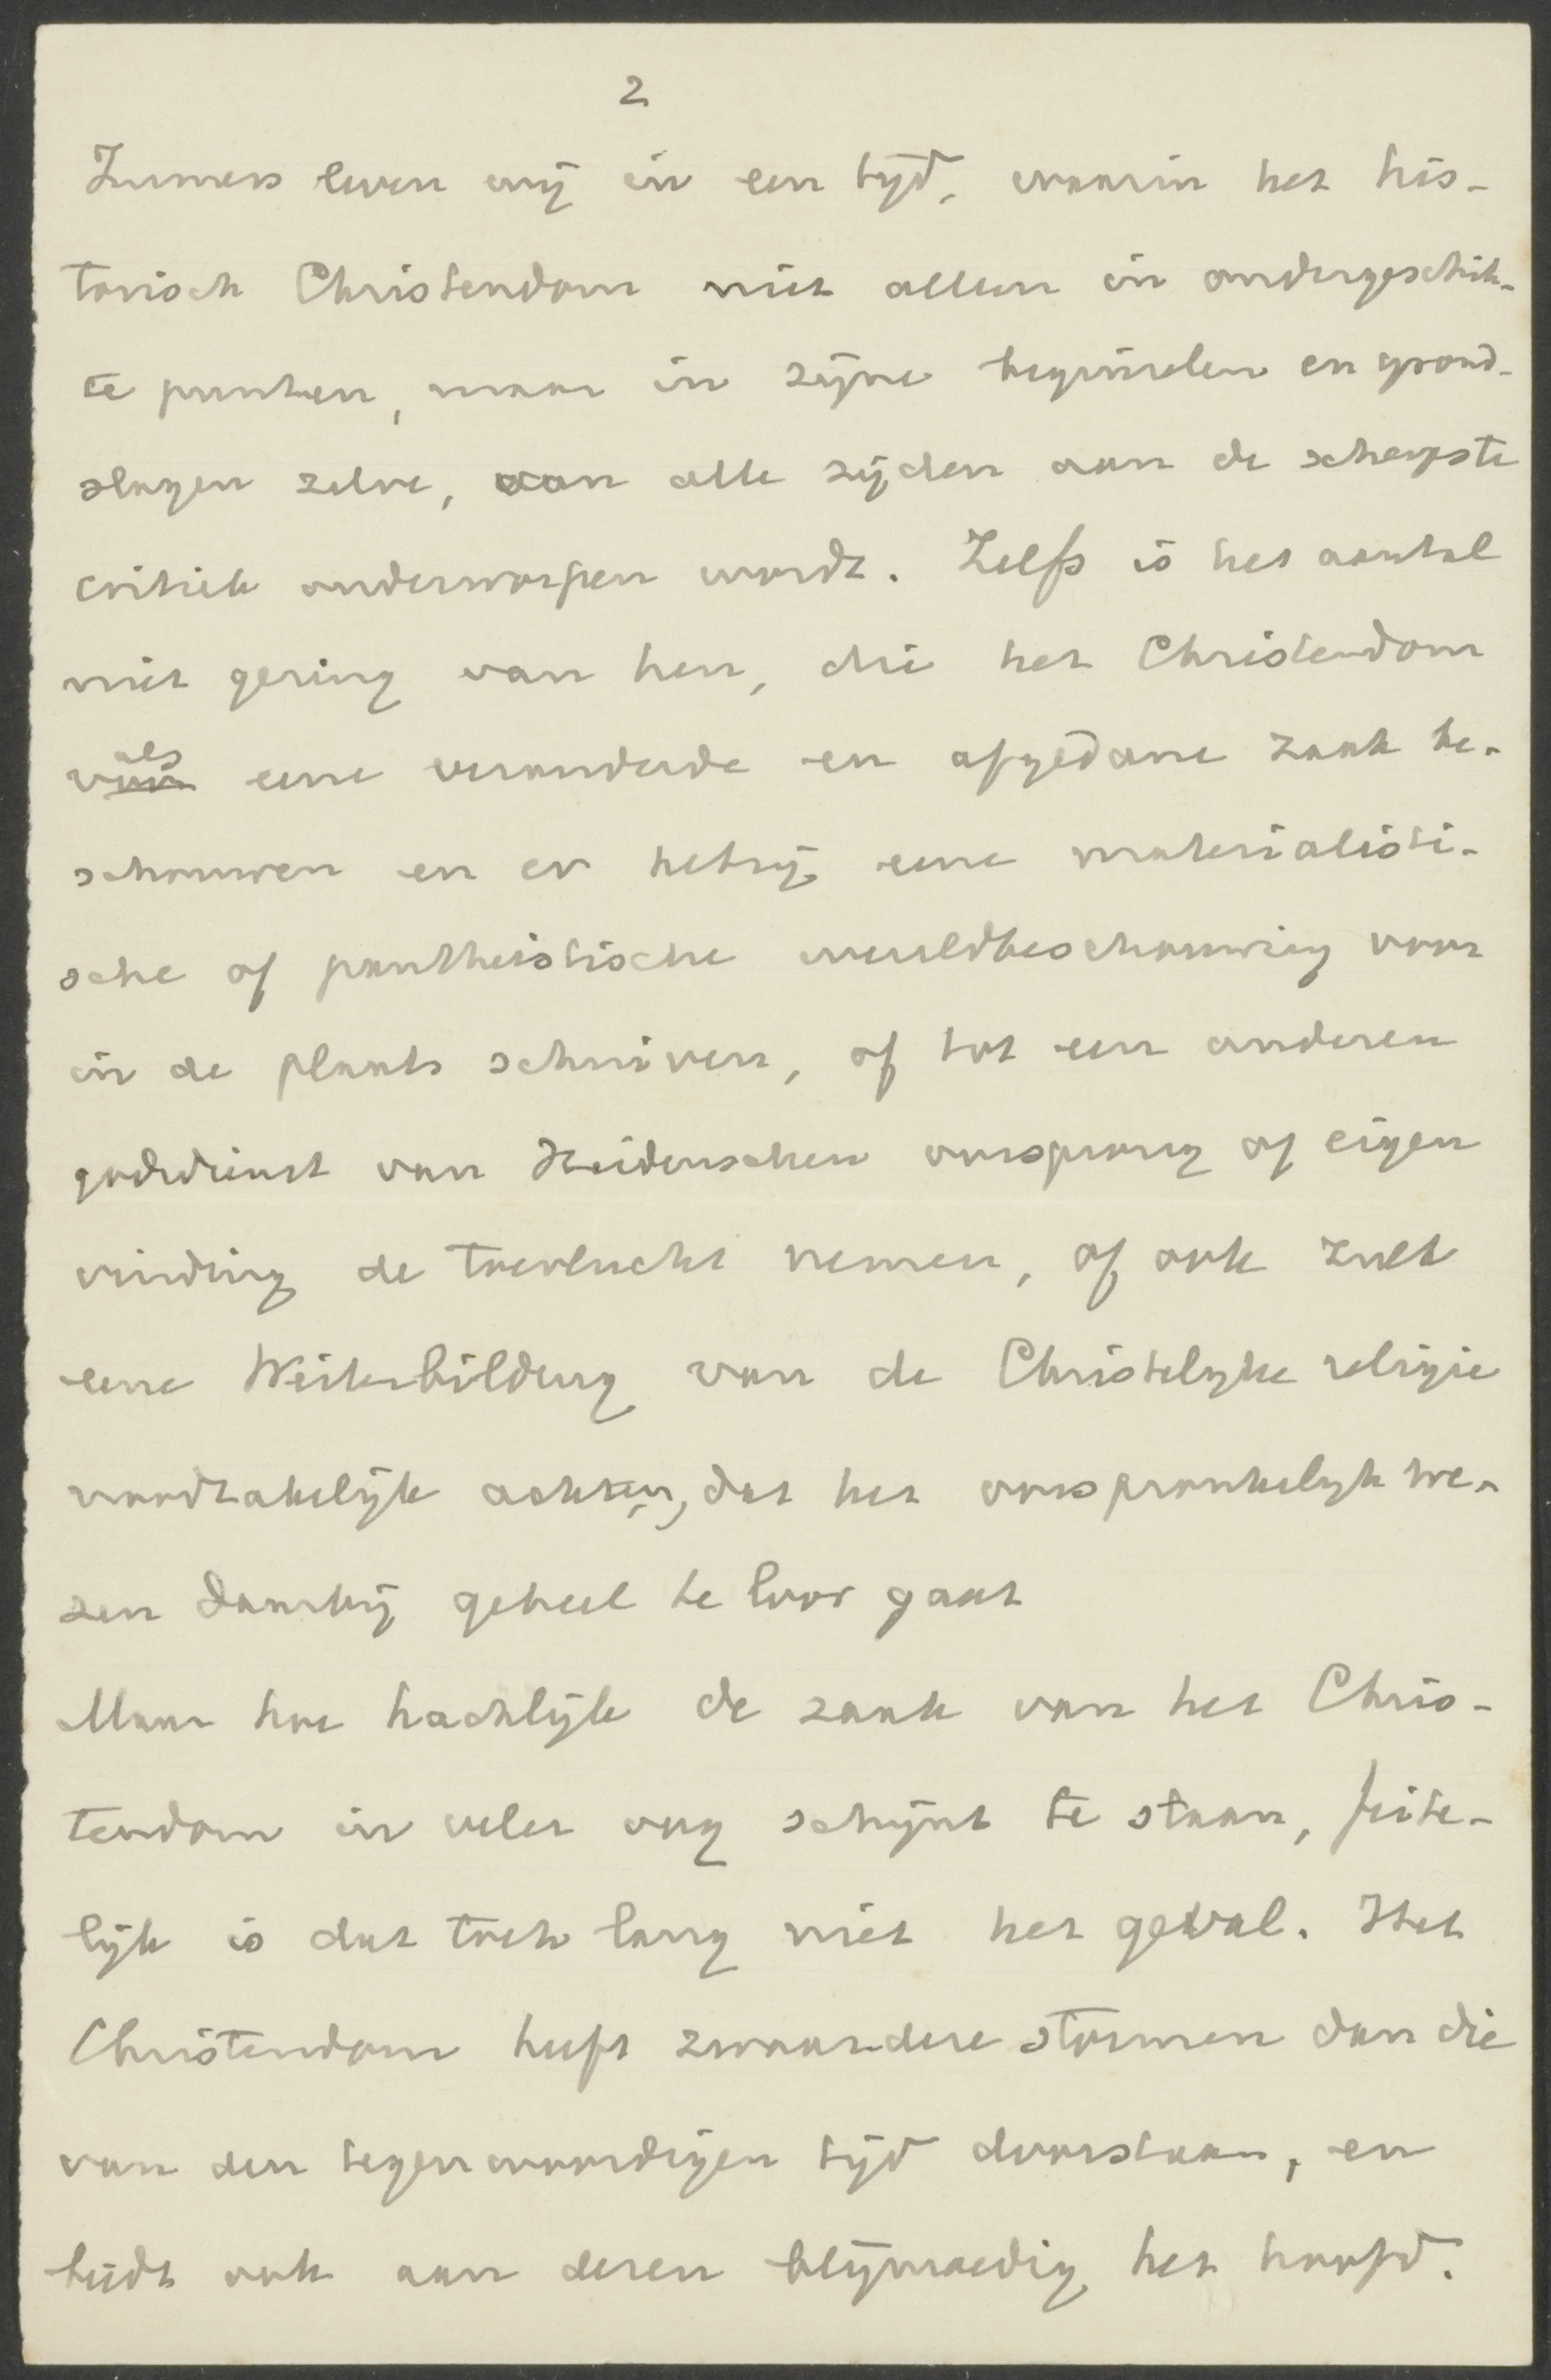 2
Immers leven wij in een tijd, waarin het his-
torisch Christendom niet alleen in ondergeschik-
te punten, maar in zijne beginselen en grond-
slagen zelve, van alle zijden aan de scherpste
critiek onderworpen wordt. Zelfs is het aantal
niet gering van hen, die het Christendom
als
van eene verouderde en afgedane zaak be-
schouwen en er hetzij eene materialisti-
sche of pantheistische wereldbeschouwing voor
in de plaats schuiven, of tot een anderen
godsdienst van Heidenschen oorsprong of eigen
vinding de toevlucht nemen, of ook zulk
eene Weiterbildung van de Christelijke religie
noodzakelijk achten, dat het oorspronkelijk we-
zen daarbij geheel te loor gaat
Maar hoe hachlijk de zaak van het Chris-
tendom in veler oog schijnt te staan, feite-
lijk is dat toch lang niet het geval. Het
Christendom heeft zwaardere stormen dan die
van den tegenwoordigen tijd doorstaan, en
biedt ook aan dezen blijmoedig het hoofd.